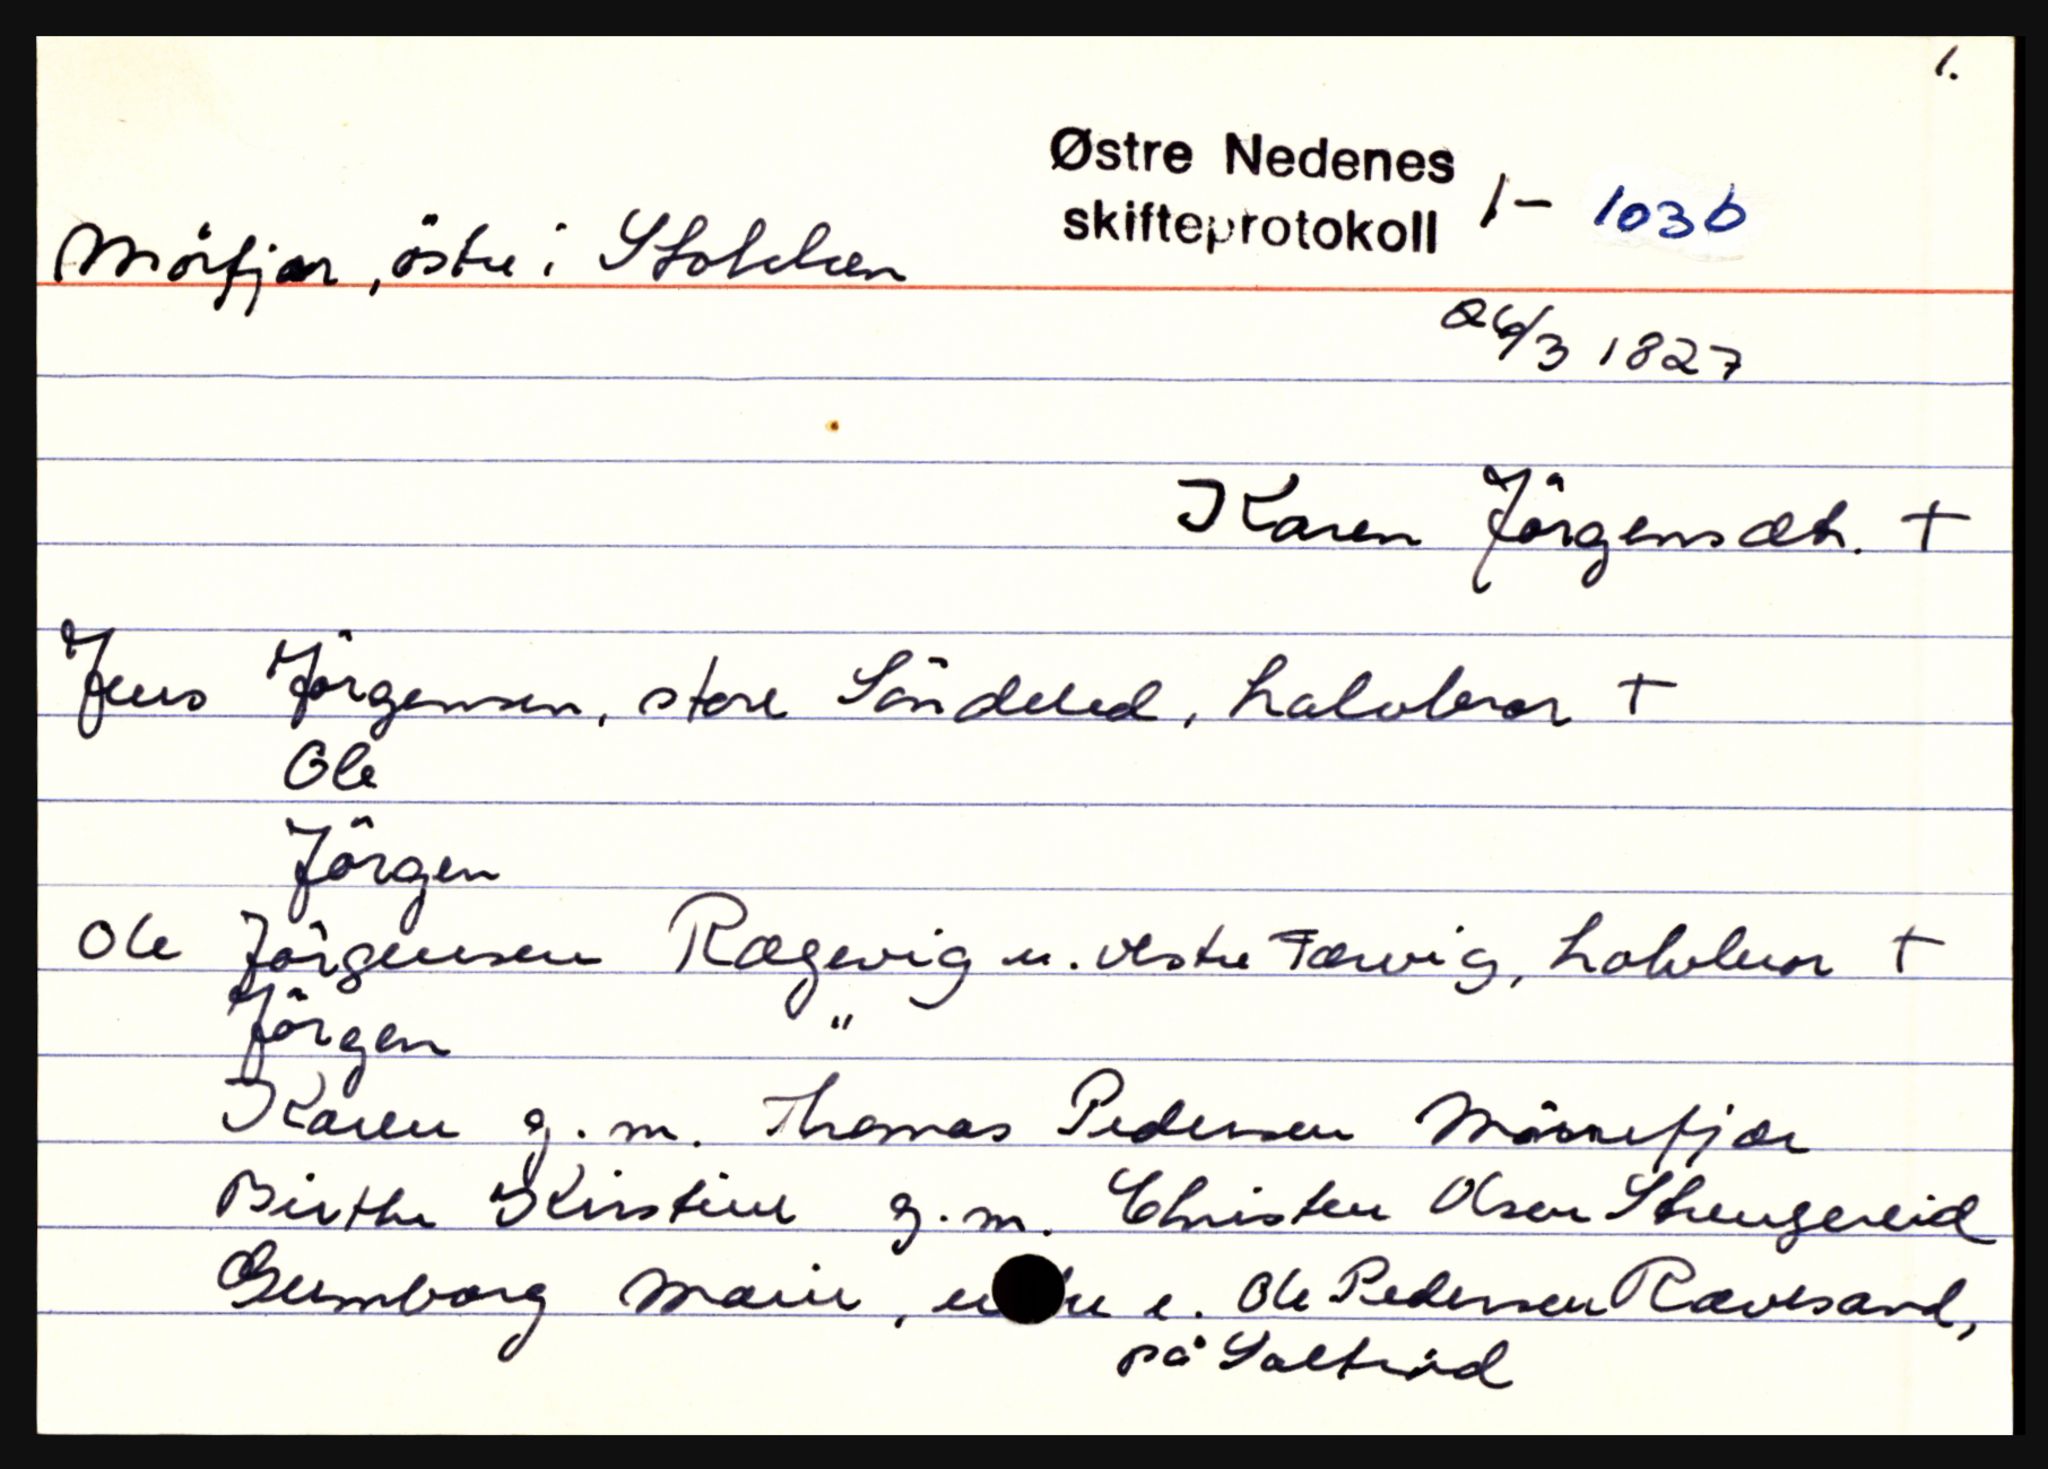 1.
Østre Nedenes
skifteprotokoll 1- 103b
Mörfjær, östre i Stokken
26/3 1827
Karen Jörgensdtr. +
Jens Jörgensen, store Söndeled, halvbror +
Ole
Jörgen
Ole Jörgensen Rægevig u. vestre Færvig, halvbror +
Jörgen "
Karen g.m. Thomas Pedersen Mörrefjær
Birthe Kirstine g.m. Christen Olsen Strengereid
Gunborg Marie, enke e. Ole Pedersen Rævesand,
på Saltröd